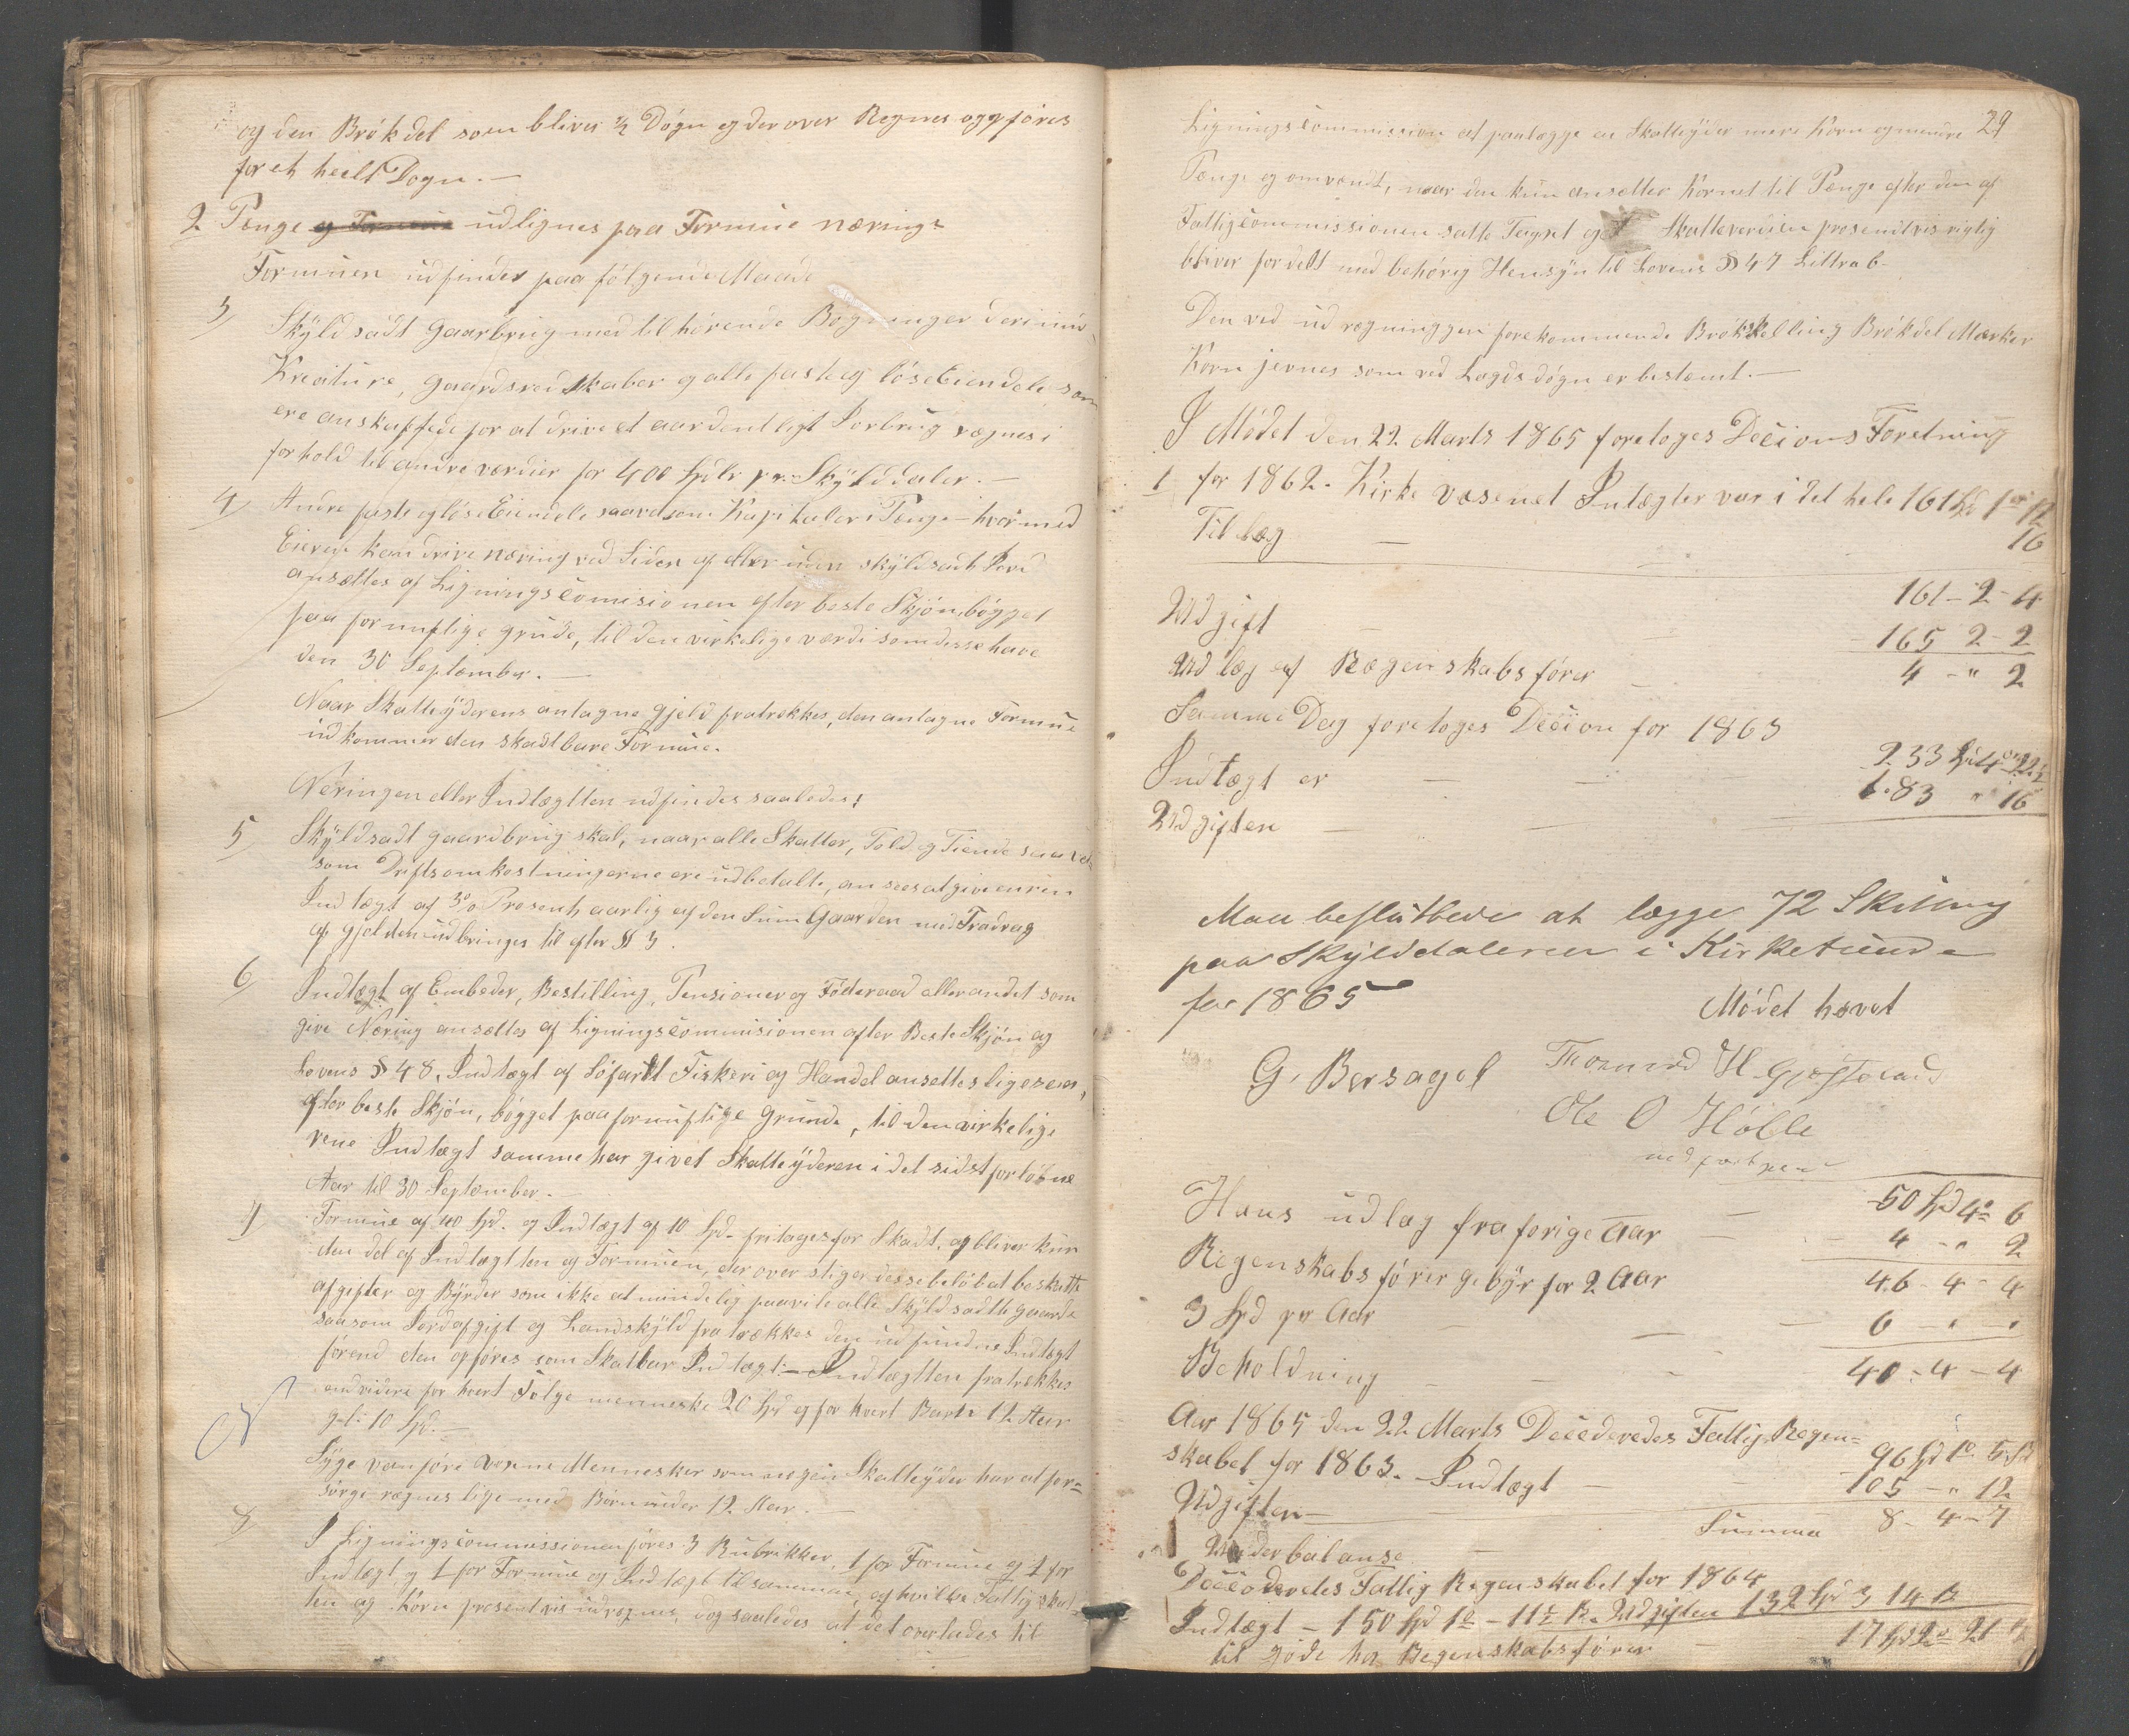 og den Brøkdel som bliver ½ Døgn og derover Regnes og opføres
for et heelt Døgn. —
2 Penge og Formue udlignes paa Formue næring
Formuen udfindes paa følgende Maade
3) Skÿldsadt Gaarbrug med tilhørende Bøgninger
Kreature, gaardsredskaber og alle faste og løse Eiendele som
ere anskaffede for at drive et aardentligt Jorbrug regnes i
forhold til andre værdier for 400 Spdlr pr. Skÿlddaler. —
4) Andre faste og løse Eiendele saavelsom Kapitaler i Penge – hvormed
Eieren kan drive næring ved Siden af eller uden skÿldsadt Jord
ansættes af Ligningscomisionen efter beste Skjøn, bøgget
paa fornuftige grunde, til den virkelige værdi som disse have
den 30 September. —
Naar Skatteÿderens antagne gjeld fratrekkes, den antagne Formue
udkommer den skadtbare Formue.
Neringen eller Indtægten udfindes saaledes:
5) Skÿldsadt gaardbrug skal, naar alle Skatter, Told og Tiende saavel
som Driftsomkostningerne ere udbetalte, ansees at give en ren
Indtægt af 3/0 Prosent aarlig af den Sum Gaarden med Fradrag
af gjelden udbringes til efter § 3.
6) Indtægt af Embeder, Bestilling, Pensioner og Føderaad eller andet som
give Næring ansættes af Ligningscommisionen efter Beste Skjøn og
Lovens § 48. Indtægt af Søfart Fiskeri og Handel ansettes ligesom,
efter beste Skjøn, bøgget paa fornuftige Grunde, til den virkelige
rene Indtægt somme har givet Skatteÿderen i det sidst forløbne
Aar til 30 September. —
7) Formue af 40 Spd. og Indtægt af 10 Spd. fritages for Skadt, og bliver kun
den del af Indtægten og Formuen, der over stiger desse beløb at beskatte
afgifter og Bÿrder som ikke almindelig paavile alle Skÿldsadte gaarde
saasom Jordafgift og Landskÿld fratrækkes den udfundne Indtægt
førend den opføres som Skatbar Indtægt. – Indtægten fratrekkes
endvidere for hvert Følge menneske 20 Spd og for hvert Barn 12 Aar
gl. 10 Spd. —
Sÿge vanføre Mennesker som nogen Skatteÿder har at for=
sørge regnes lige med Børn under 12 Aar. —
8) I Ligningscommissionen føres 3 Rubrikker, 1 for Formue og 1 for
Indtægt og 1 for Formue og Indtægt tilsammen, efter hvilke Fattigskat
ten og Korn prosentvis udregnes, dog saaledes at det overlades til
29
Ligningscommission at paalægge en Skatteÿder mere Korn og mindre
Penge og omvendt, naar den kun ansætter Kornet til Penge efter den af
Fattigcommissionen satte Taxt og at Skatteverdien prosentvis rigtig
bliver fordelt med behørig Hensÿn til Lovens § 47 Littra b.
Den ved udregninggen forekommende Brøkskelling Brøkdel Mærker
Korn jevnes som ved Lægdsdøgn er bestemt. —
I Mødet den 22 Marts 1865 foretoges Decions Foretning
1 for 1862. Kirkevæsenet Indtægter var i det hele 161 Spd 1 ort 12
Tillæg — 16
161 – 2 – 4
Udgift — 165 2 – 2
Udlæg af Regenskabsfører — 4 – " 2
Samme Dag foretoges Decion for 1863
Indtægt er — 233 Spd 4 ort 22½
Udgiften — 183 " 16
Man besluttede at lægge 72 Skilling
paa Skÿlddaleren i Kirketiende
for 1865
Mødet hævet
G. Bersagel Thormod H Gjøsteland
Ole O Hølle
med paaholden pen
Hans udlæg fra forige Aar — 50 Spd 4 ort 6
— 4 – " 2
Regenskabsfører gebÿr for 2 Aar 46 – 4 – 4
3 Spd pr Aar — 6 – " "
Beholdning — 40 – 4 – 4
Aar 1865 den 22 Marts Decederedes Fattig Regen=
skabet for 1863. Indtægt — 96 Spd 1 ort 5 sk
Udgiften — 105 – " 12
Summa 8 – 4 – 7
Underbalanse
Decederedes Fattig Regenskabet for 1864
Indtægt – 150 Spd 1 ort – 11½ sk. Udgiften 132 Spd 3, 14 sk
til gode ha Regenskabsfører — 17 Spd 2 ort 21 sk